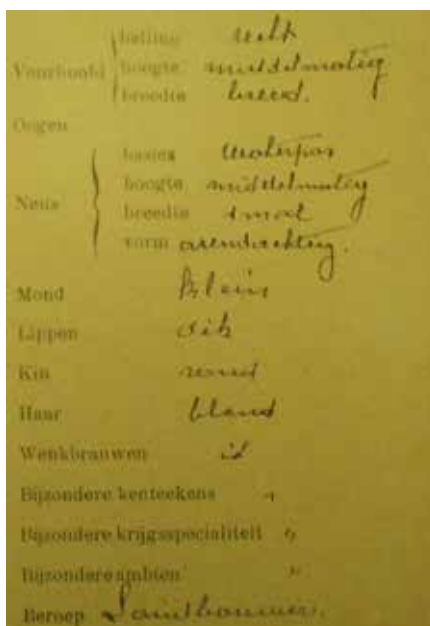 helling recht
Voorhoofd hoogte middelmatig
breedte breed.
Oogen
basies Waterpas
hoogte middelmatig
Neus breedte smal
vorm arendachtig.
Mond Klein
Lippen dik
Kin rond
Haar blond
Wenkbrauwen id
Bijzondere kenteekens "
Bijzondere krijgsspecialiteit "
Bijzondere ambten "
Beroep Landbouwer.